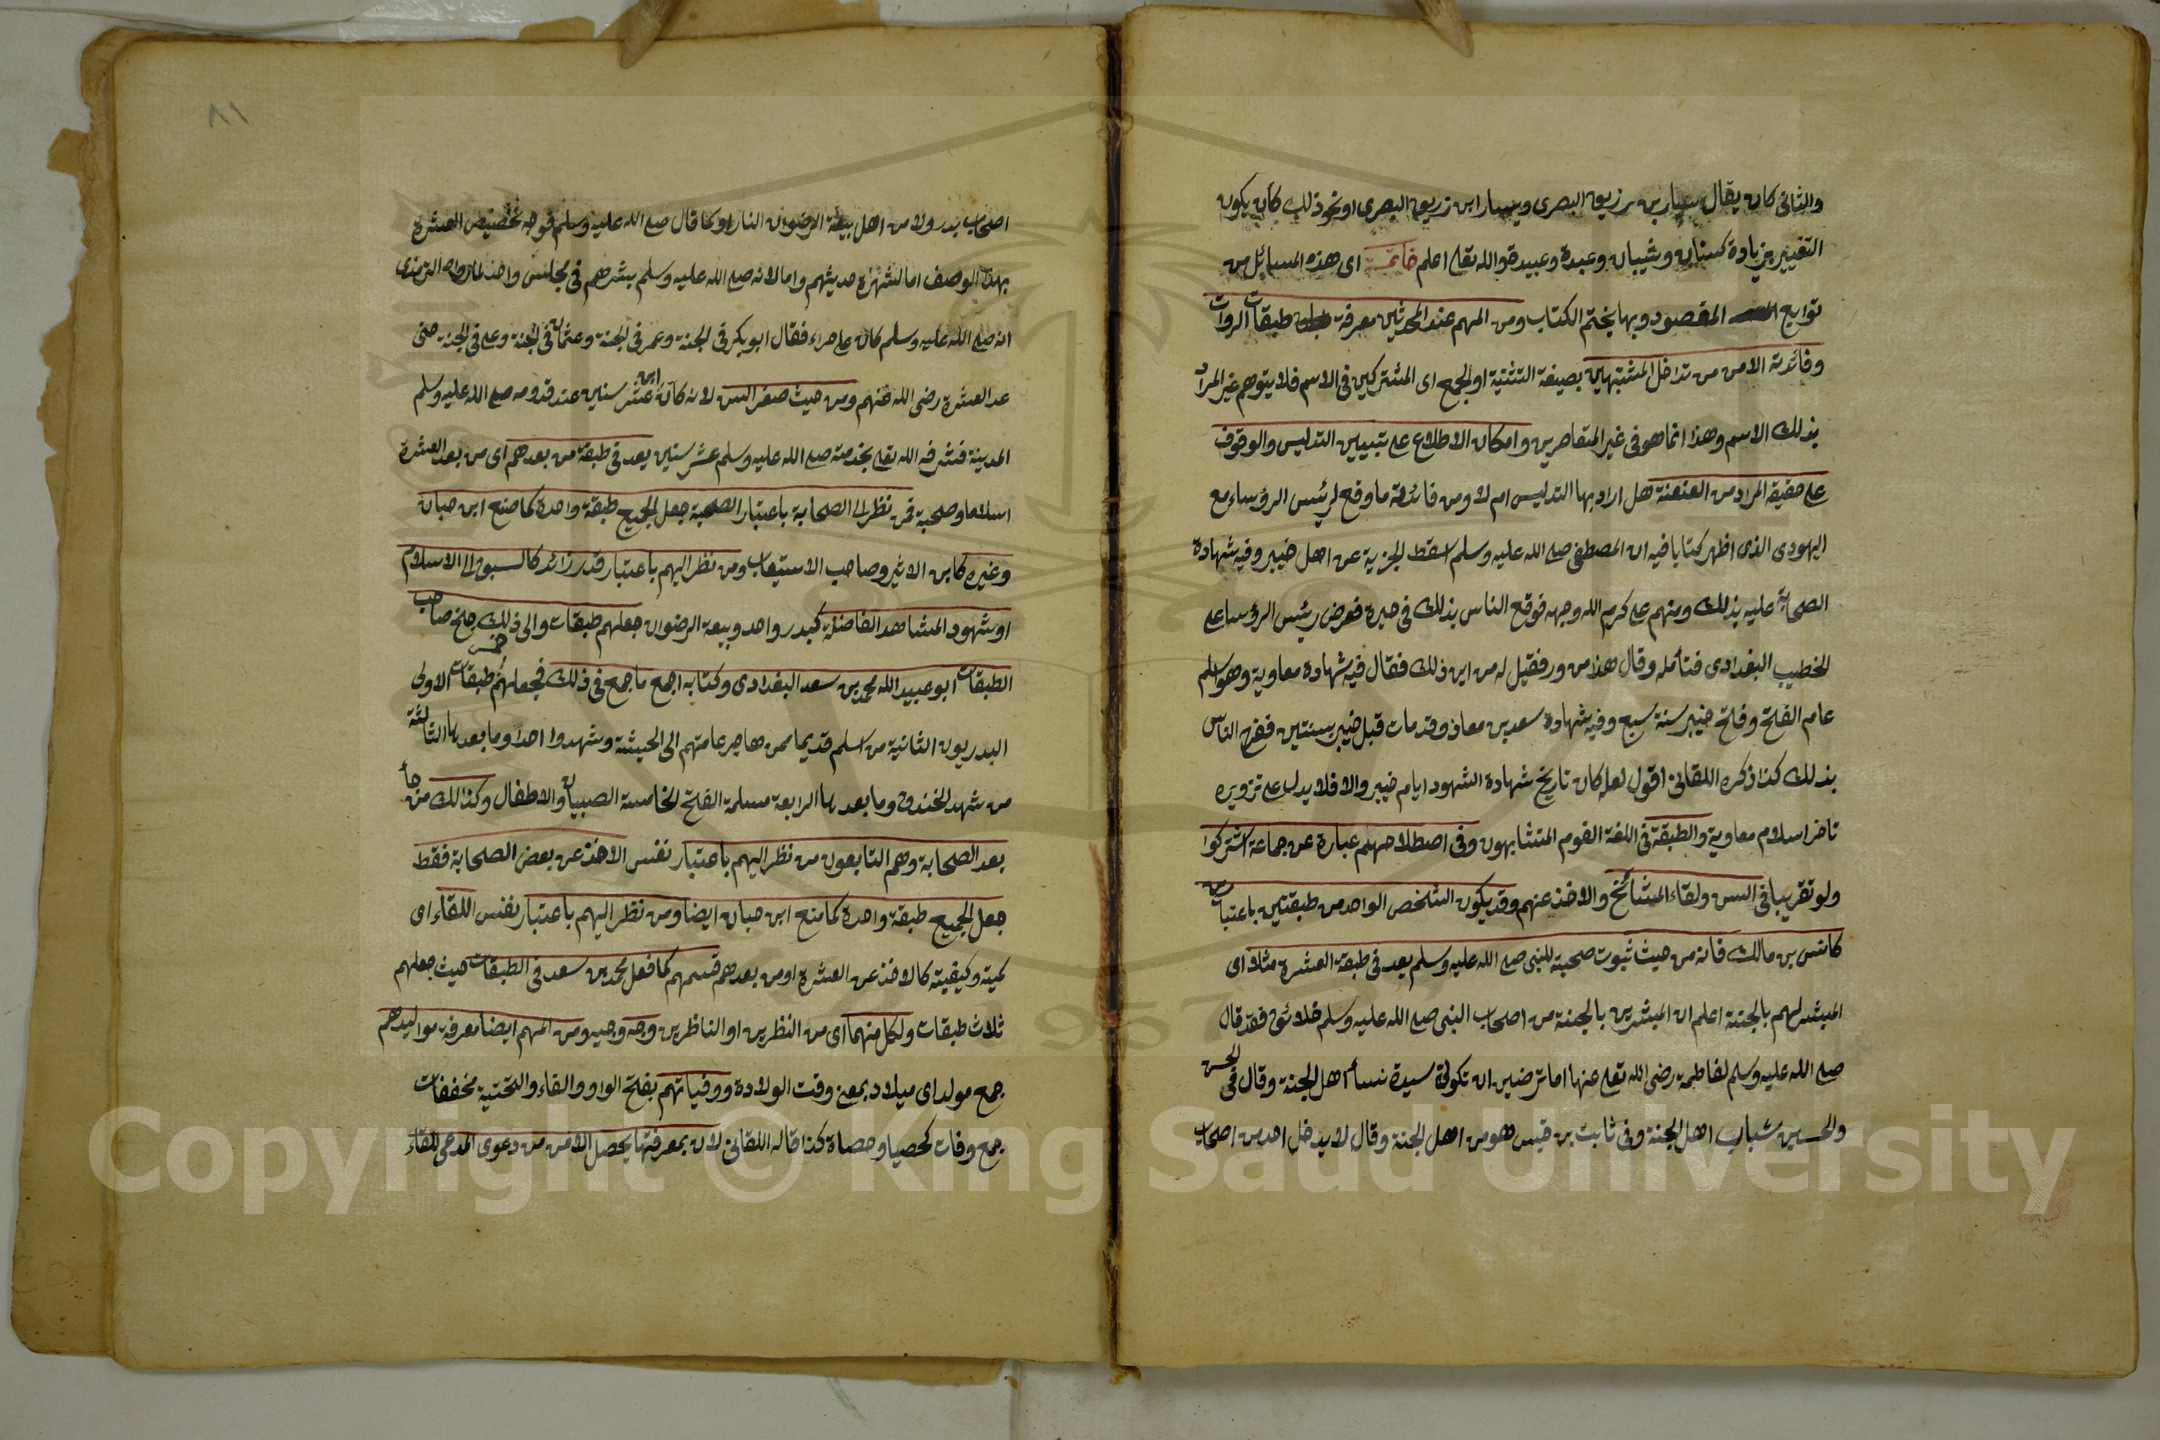 والثاني كان يقال سيار بن زريق البصرى ويسار ابن زريق البصرى او نحو ذلك كان يكون
التغيير بزيادة كسنان وشيبان وعبدة وعبيدة والله تعلى اعلم خاتمة اى هذه المسائل من
توابع المقصود وبها يختم الكتاب ومن المهم عند المحدثين معرفة طبقات الروات
وفائدته الامن من تداخل المشتبهين بصيغة التثنية او الجمع اى المشتركين فى الاسم فلا يتوهم غير المراد
بذلك الاسم وهذا انما هو فى غير المتعاصرين وامكان الاطلاع على تبيين التدليس والوقوف
على حقيقة المراد من العنعنة هل اراد بها التدليس ام لا ومن فائدته ما وقع لرئيس الرؤساء مع
اليهودى الذى اظهر كتابا فيه ان المصطفى صلى الله عليه وسلم اسقط الجزية عن اهل خيبر وفيه شهادة
الصحابة عليه بذلك ومنهم على كرم الله وجهه فوقع الناس بذلك فى حيرة فعرض رئيس الرؤسا على
الخطيب البغدادى فتأمله وقال هذا مزور فقيل له من اين ذلك فقال فيه شهادة معاوية وهو اسلم
عام الفتح وفتح خيبر سنة سبع وفيه شهادة سعد بن معاذ وقد مات قبل خيبر بسنتين ففرح الناس
بذلك كذا ذكره اللقانى اقول لعل كان تاريخ شهادة الشهود ايام خيبر والا فلا يدل على تزويره
تاخر اسلام معاوية والطبقة فى اللغة القوم المتشابهون وفى اصطلاحهم عبارة عن جماعة اشتركوا
ولو تقريبا فى السن ولقاء المشائخ والاخذ عنهم وقد يكون الشخص الواحد من طبقتين باعتبارين
كانس بن مالك فانه من حيث ثبوت صحبته للنبى صلى الله عليه وسلم يعد فى طبقة العشرة مثلا اى
المبشر لهم بالجنة اعلم ان المبشرين بالجنة من اصحاب النبى صلى الله عليه وسلم خلائق فقد قال
صلى الله عليه وسلم لفاطمة رضى الله تعلى عنها اما ترضين ان تكونى سيدة نساء اهل الجنة وقال فى الحسن
والحسين شباب اهل الجنة وفى ثابت بن قيس هو من اهل الجنة وقال لا يدخل احد من اصحاب
٨١
اصحاب بدر ولا من اهل بيعة الرضوان النار او كما قال صلى الله عليه وسلم فوجه تخصيص العشرة
بهذا الوصف اما لشهرة حديثهم واما لانه صلى الله عليه وسلم بشرهم فى مجلس واحد لما رواه الترمذى
انه صلى الله عليه وسلم كان على حراء فقال ابو بكر فى الجنة وعمر فى الجنة وعثمان فى الجنة وعلى فى الجنة حتى
عد العشرة رضى الله عنهم ومن حيث صغر السن لانه كان ابن عشر سنين عند قدومه صلى الله عليه وسلم
المدينة فشرفه الله تعلى بخدمته صلى الله عليه وسلم عشر سنين يعد فى طبقة من بعدهم اى من بعد العشرة
اسلاما وصحبة فمن نظر الى الصحابة باعتبار الصحبة جعل الجميع طبقة واحدة كما صنع ابن حبان
وغيره كابن الاثير وصاحب الاستيعاب ومن نظر اليهم باعتبار قدر زائد كالسبق الى الاسلام
او شهود المشاهد الفاضلة كبدر واحد وبيعة الرضوان جعلهم طبقات والى ذلك جنح صاحب
الطبقات ابو عبيد الله محمد بن سعد البغدادى وكتابه اجمع ما جمع فى ذلك فجعلهم خمس طبقات الاولى
البدريون الثانية من اسلم قديما ممن هاجر عامتهم الى الحبشة وشهدوا احدا وما بعدها الثالثة
من شهد الخندق وما بعدها الرابعة مسلمة الفتح الخامسة الصبيان والاطفال وكذالك من جاء
بعد الصحابة وهم التابعون من نظر اليهم باعتبار نفس الاخذ عن بعض الصحابة فقط
جعل الجميع طبقة واحدة كما صنع ابن حبان ايضا ومن نظر اليهم باعتبار نفس اللقاء اى
كميته وكيفيته كالاخذ عن العشرة او من بعدهم قسمهم كما فعل محمد بن سعد فى الطبقات حيث جعلهم
ثلاث طبقات ولكل منهما اى من النظرين او الناظرين وجه وجيه ومن المهم ايضا معرفة مواليدهم
جمع مولد اى ميلاد بمعنى وقت الولادة ووفياتهم بفتح الواو والفاء والتحتية مخففات
جمع وفات كحصيا وحصاة كذا قاله اللقانى لان بمعرفتها يحصل الامن من دعوى المدعى للقاء
Copyright © King Saud University
1957